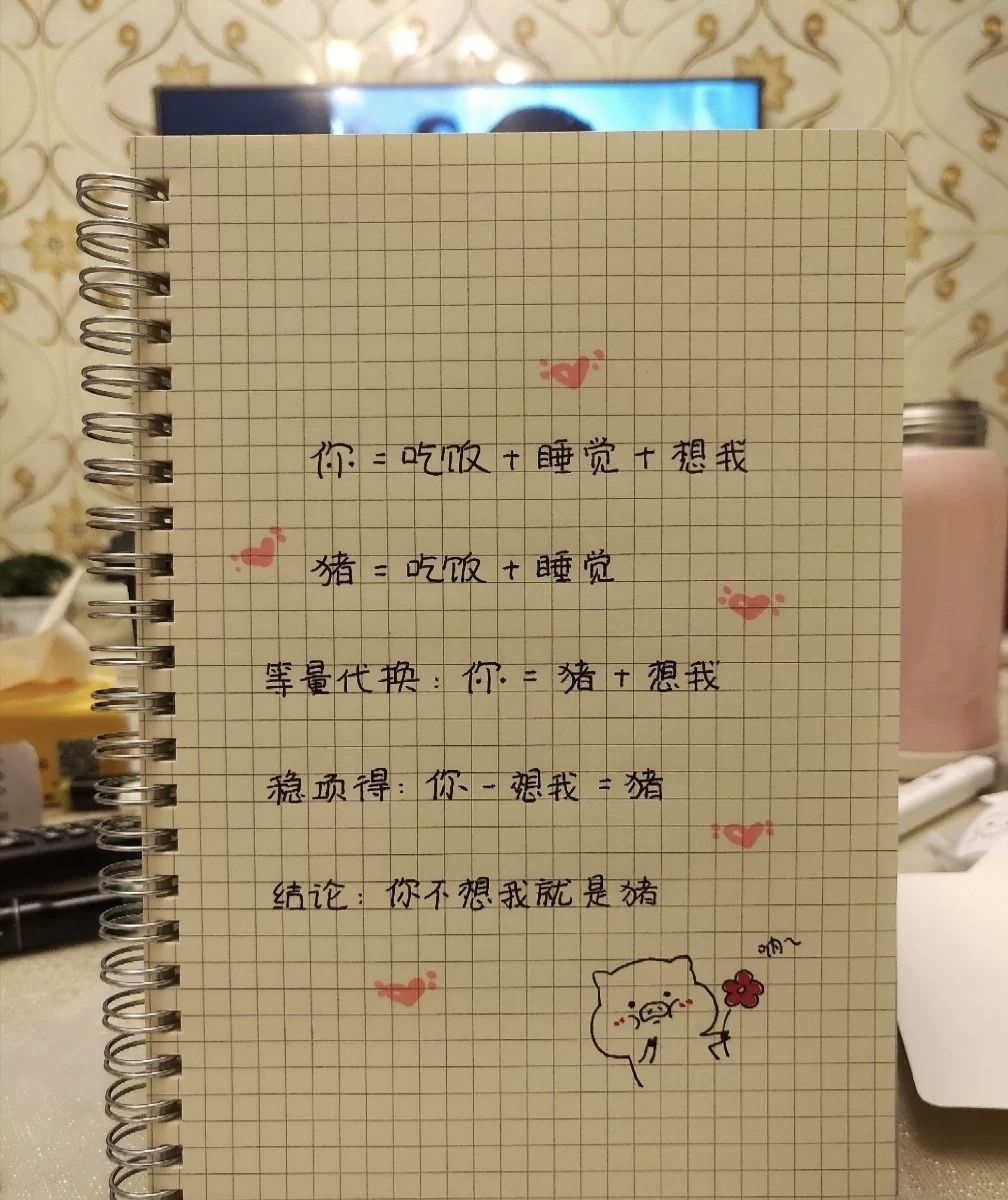 你 = 吃饭 + 睡觉 + 想我
猪 = 吃饭 + 睡觉
等量代换: 你 = 猪 + 想我
稳项得: 你 - 想我 = 猪
结论: 你不想我就是猪
呐~